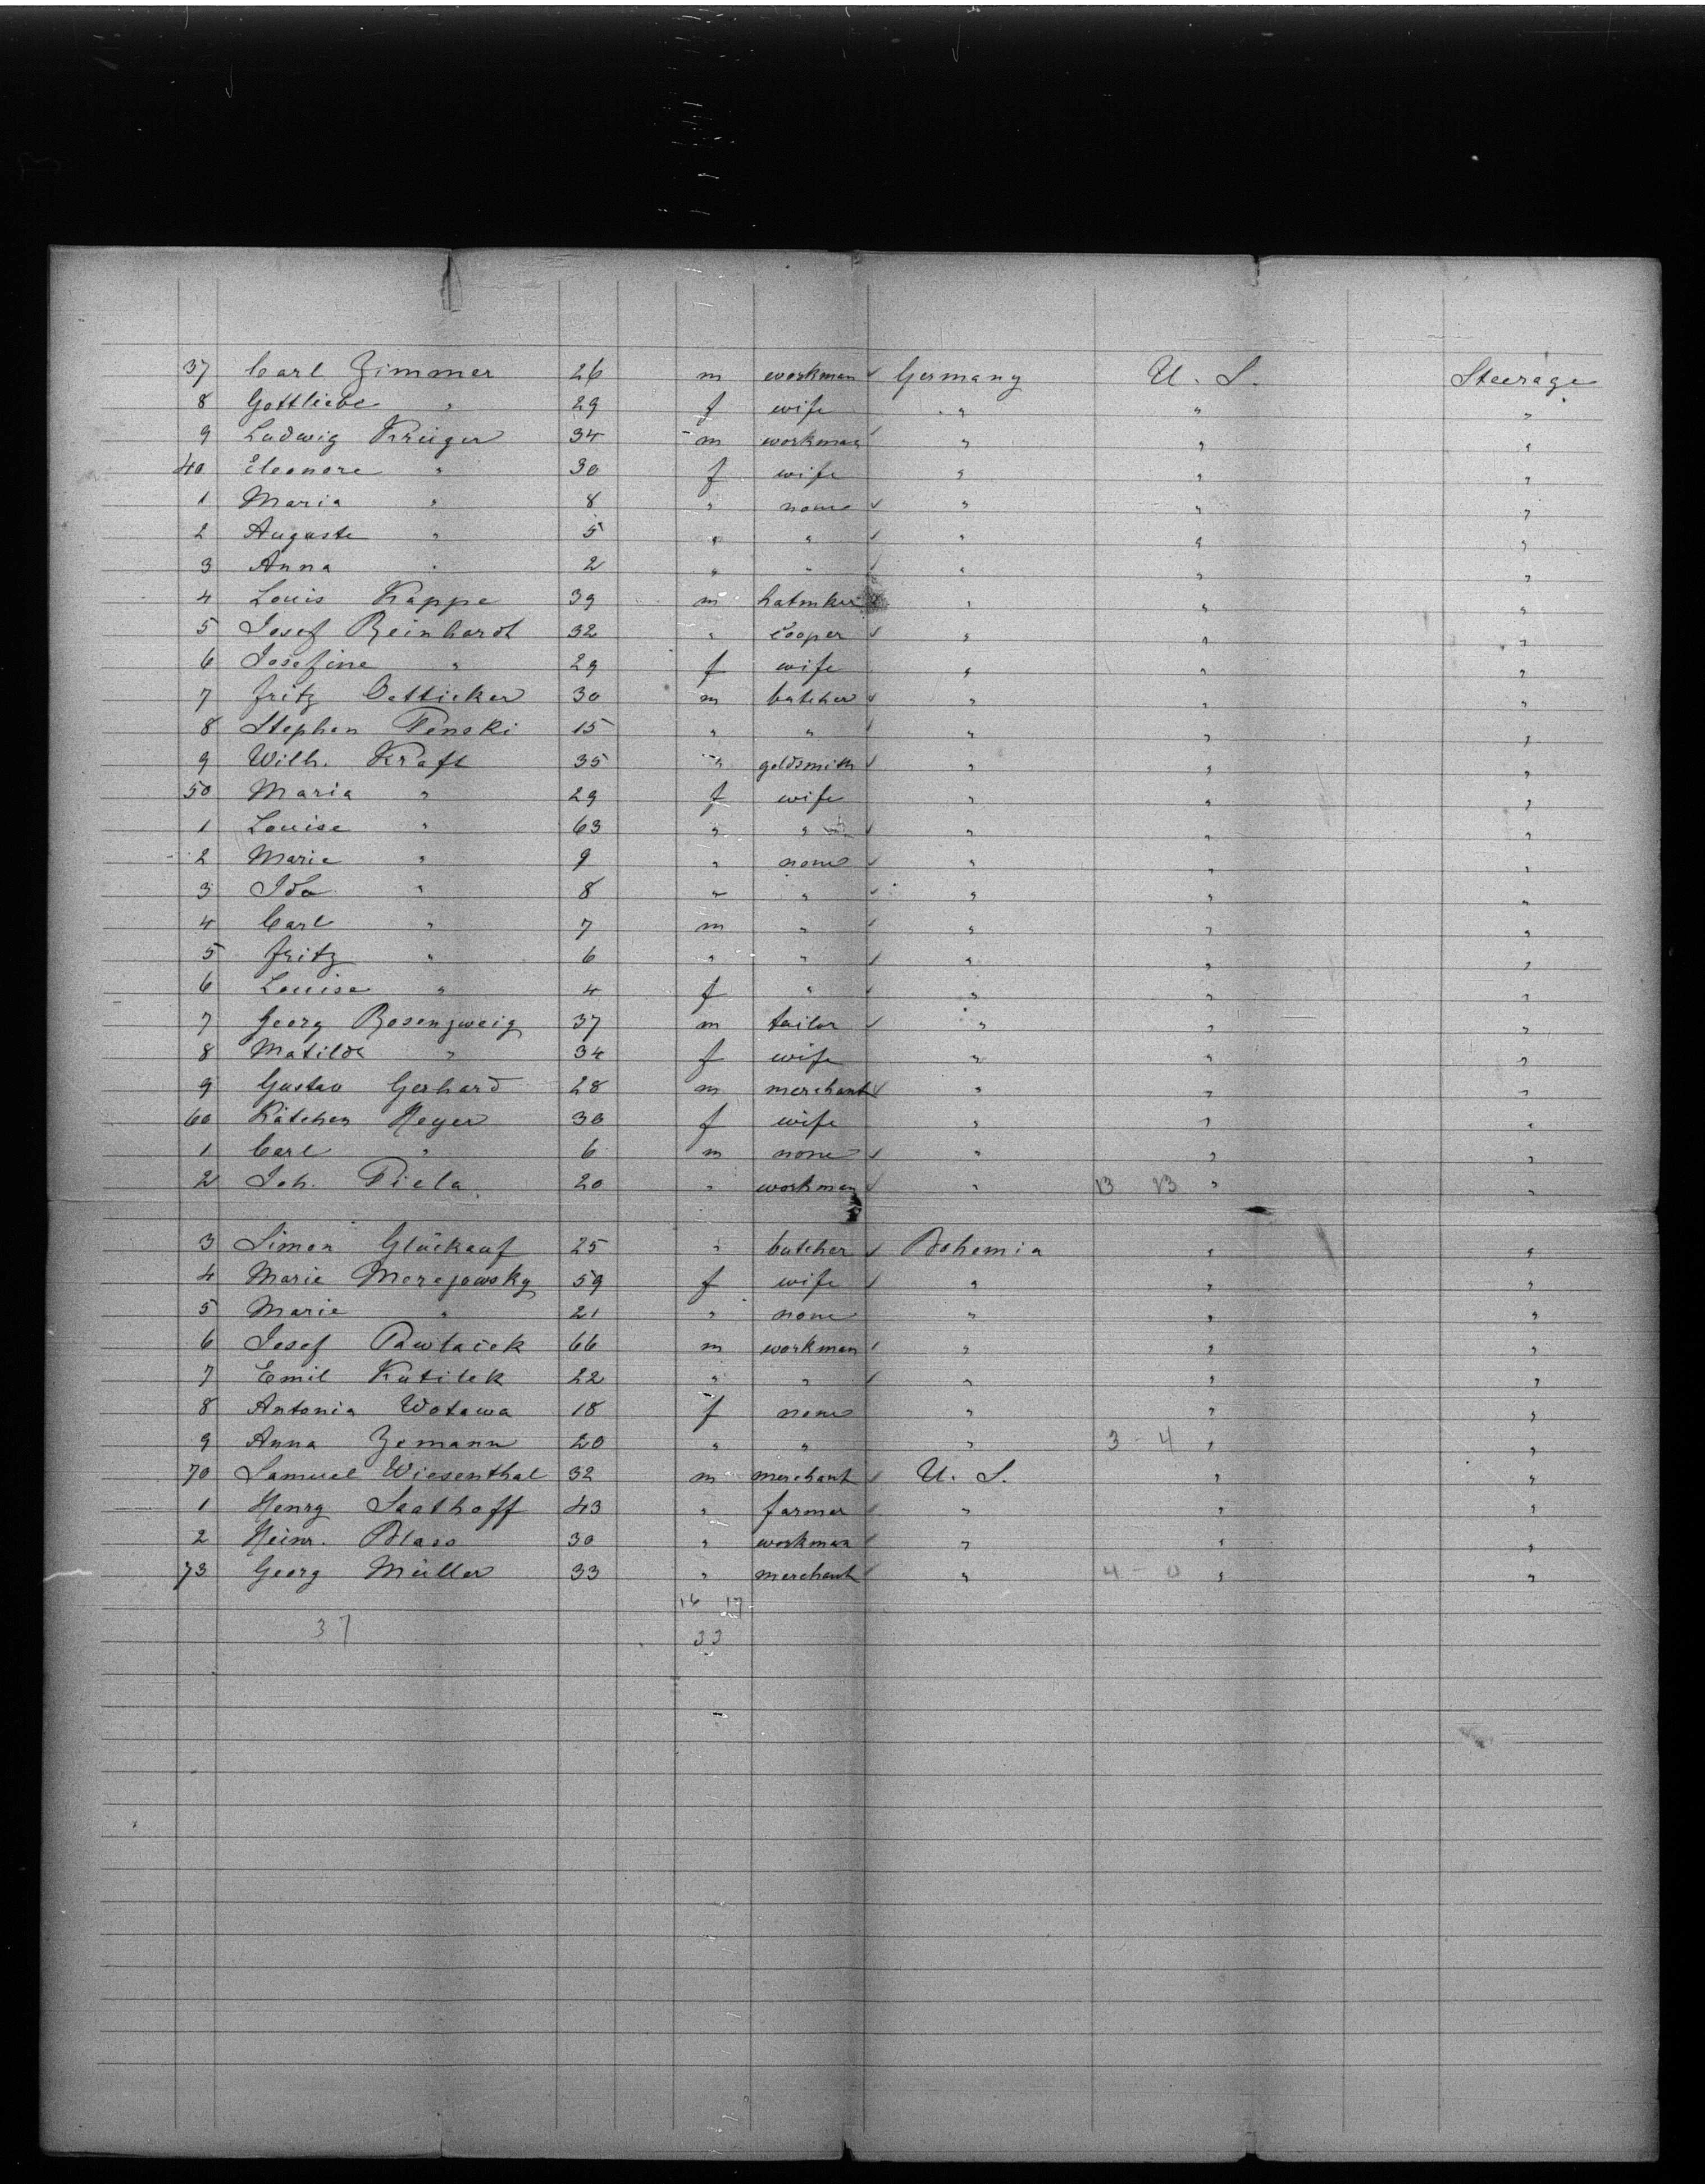 37 Carl Zimmer 26 m workman ✓ Germany U. S. Steerage
8 Gottliebe " 29 f wife " " "
9 Ludwig Krüger 34 m workman ✓ " " "
40 Eleonore " 30 f wife " " "
1 Maria " 8 " none ✓ " " "
2 Auguste " 5 " " ✓ " " "
3 Anna " 2 " " ✓ " " "
4 Louis Kappe 39 m hatmker " " "
5 Josef Reinhardt 32 " Cooper ✓ " " "
6 Josefine " 29 f wife " " "
7 Fritz Oetticker 30 m butcher ✓ " " "
8 Stephan Penski 15 " " ✓ " " "
9 Wilh. Kraft 35 " goldsmith ✓ " " "
50 Maria " 29 f wife " " "
1 Louise " 63 " " ✓ " " "
2 Marie " 9 " none ✓ " " "
3 Ida " 8 " " ✓ " " "
4 Carl " 7 m " ✓ " " "
5 Fritz " 6 " " ✓ " " "
6 Louise " 4 f " ✓ " " "
7 Georg Rosenzweig 37 m tailor ✓ " " "
8 Matilde " 34 f wife " " "
9 Gustav Gerhard 28 m merchant ✓ " " "
60 Kätchen Meyer 30 f wife " " "
1 Carl " 6 m none ✓ " " "
2 Joh. Piela 20 " workman ✓ " 13 13 " "
3 Simon Glückauf 25 " butcher ✓ Bohemia " "
4 Marie Merejowsky 59 f wife ✓ " " "
5 Marie " 21 " none " " "
6 Josef Pawlaček 66 m workman ✓ " " "
7 Emil Kutilek 22 " " ✓ " " "
8 Antonia Wotawa 18 f none " " "
9 Anna Zemann 20 " " " 3 - 4 " "
70 Samuel Wiesenthal 32 m merchant ✓ U. S. " "
1 Henry Saathoff 43 " farmer ✓ " " "
2 Heinr. Blass 30 " workman ✓ " " "
73 Georg Müller 33 " merchant ✓ " 4 - 0 " "
16 17
37 33